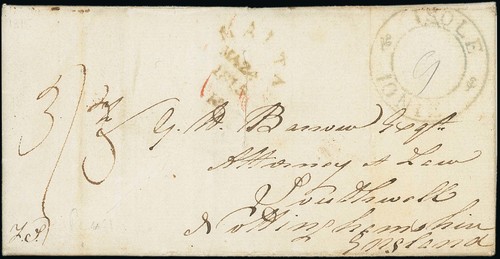 MALTA
ISOLE
IONIE
9
3/3
G. H. Barrow Esqre.
Attorney at Law
Southwell
Nottinghamshire
England